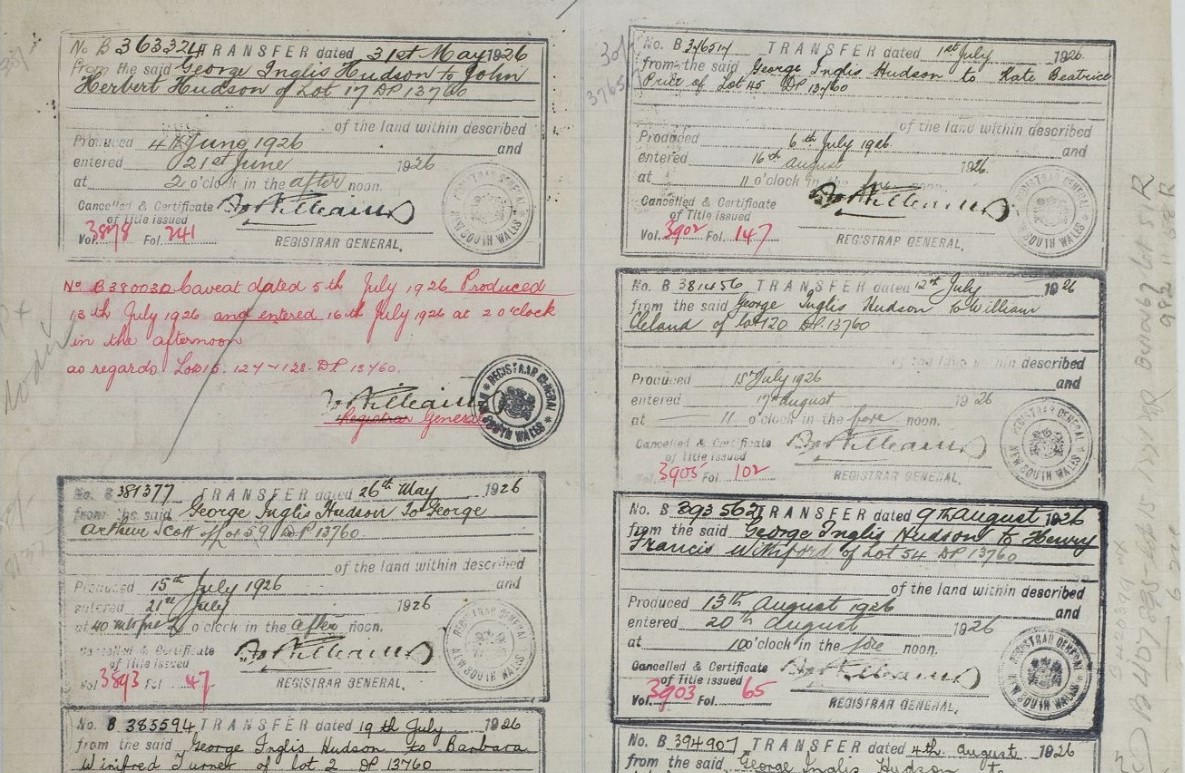 No B 363324 TRANSFER dated 31st May 1926
from the said George Inglis Hudson to John
Herbert Hudson of Lot 17 DP 13760
of the land within described
Produced 4th June 1926 and
entered 21st June 1926
at 2 o'clock in the after noon.
Cancelled & Certificate
of Title issued
Vol. 3878 Fol. 241
REGISTRAR GENERAL.
No B 380030 Caveat dated 5th July 1926 Produced
13th July 1926 and entered 16th July 1926 at 2 o'clock
in the afternoon
as regards Lots 127-128 DP 13760.
Registrar General
REGISTRAR GENERAL
NEW SOUTH WALES
No. B 381377 TRANSFER dated 26th May 1926
from the said George Inglis Hudson to George
Arthur Scott of Lot 59 DP 13760
of the land within described
Produced 15th July 1926 and
entered 21st July 1926
at o'clock in the after noon.
Cancelled & Certificate
of Title issued
Vol 3893 Fol 47
REGISTRAR GENERAL.
No. B 385594 TRANSFER dated 19th July 1926
from the said George Inglis Hudson to Barbara
Winifred Turner of Lot 2 DP 13760
No. B 376517 TRANSFER dated 1st July 1926
from the said George Inglis Hudson to Kate Beatrice
Price of Lot 45 DP 13760
of the land within described
Produced 6th July 1926 and
entered 16th August 1926
at 11 o'clock in the fore noon.
Cancelled & Certificate
of Title issued
Vol. 3902 Fol. 147
REGISTRAR GENERAL.
No. B 381456 TRANSFER dated 12th July 1926
from the said George Inglis Hudson to William
Cleland of lot 120 DP 13760
of the land within described
Produced 15th July 1926 and
entered 17th August 1926
at 11 o'clock in the fore noon.
Cancelled & Certificate
of Title issued
Vol. 3905 Fol. 102
REGISTRAR GENERAL.
No. B 393562 TRANSFER dated 9th August 1926
from the said George Inglis Hudson to Henry
Francis of Lot 54 DP 13760
of the land within described
Produced 13th August 1926 and
entered 20th August 1926
at 10 o'clock in the fore noon.
Cancelled & Certificate
of Title issued
Vol. 3903 Fol. 65
REGISTRAR GENERAL.
No. B 394907 TRANSFER dated 4th August 1926
from the said George Inglis Hudson to